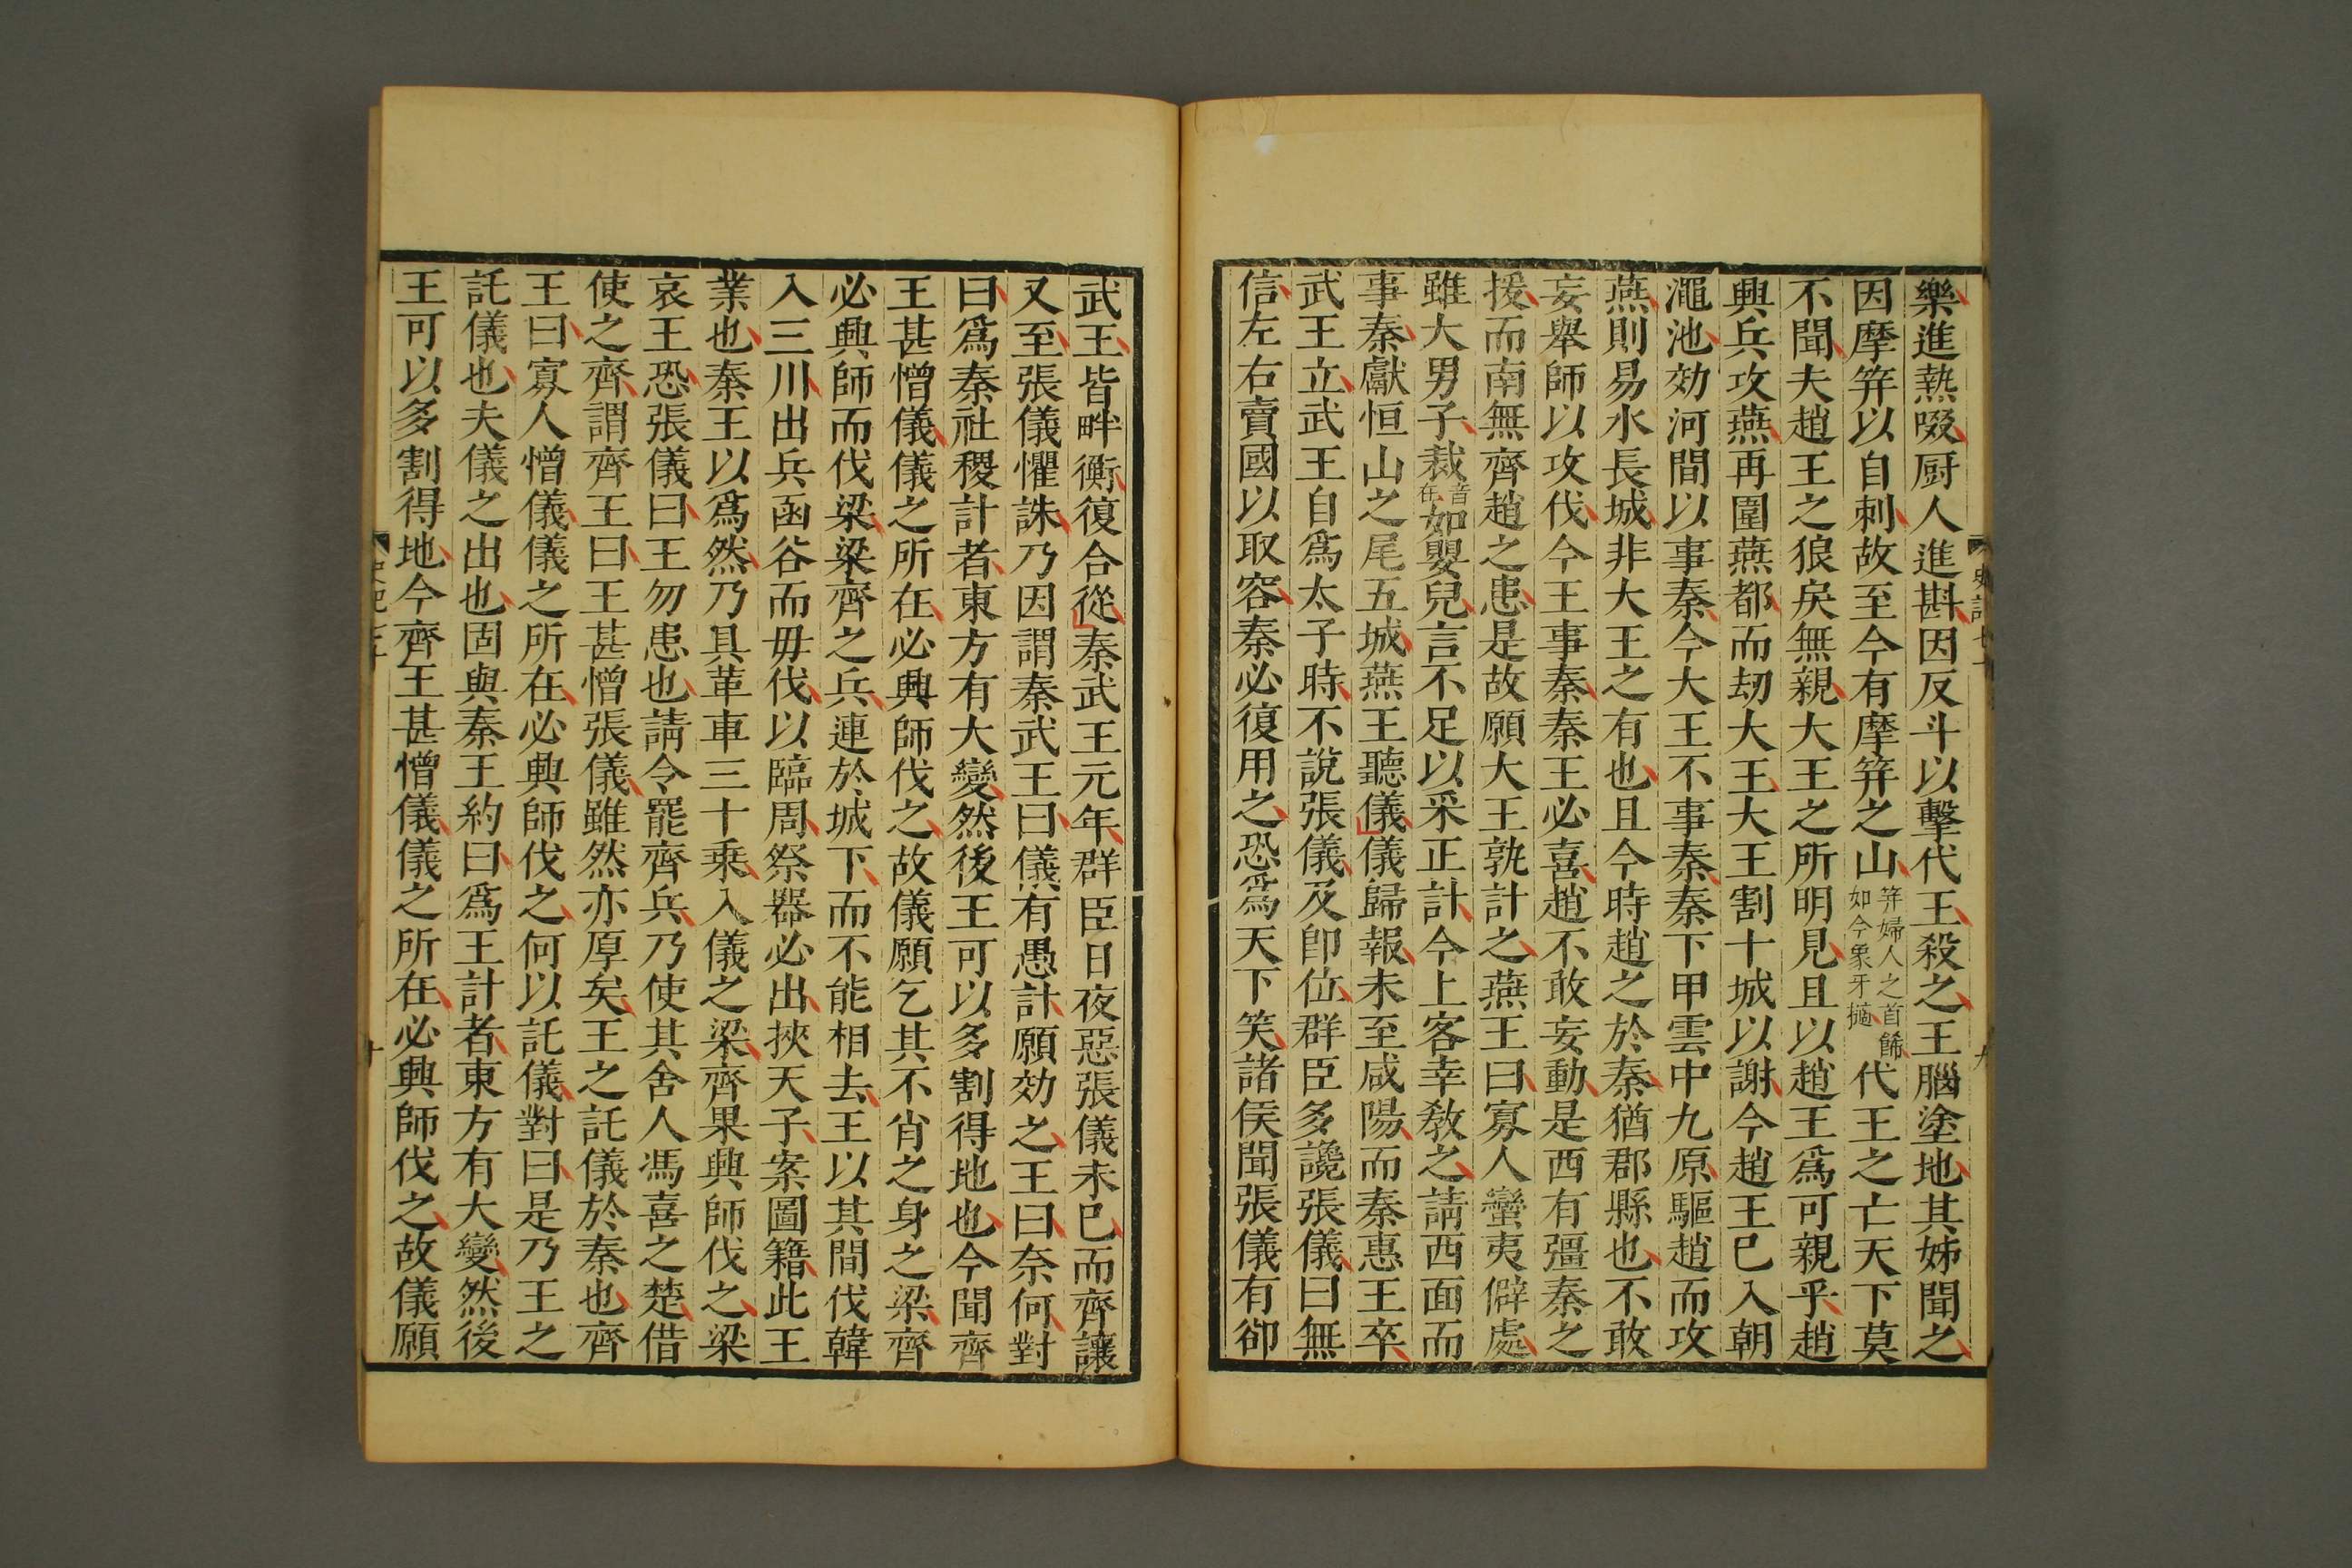 樂進熱啜厨人進斟因反斗以擊代王殺之王腦塗地其姊聞之
因摩筓以自刺故至今有摩筓之山筓婦人之首餙如今象牙擿代王之亡天下莫
不聞夫趙王之狼戾無親大王之所明見且以趙王爲可親乎趙
興兵攻燕再圍燕都而刧大王大王割十城以謝今趙王已入朝
澠池効河間以事秦今大王不事秦秦下甲雲中九原驅趙而攻
燕則易水長城非大王之有也且今時趙之於秦猶郡縣也不敢
妄舉師以攻伐今王事秦秦王必喜趙不敢妄動是西有彊秦之
援而南無齊趙之患是故願大王孰計之燕王曰寡人蠻夷僻處
雖大男子裁音在如嬰兒言不足以采正計今上客幸敎之請西面而
事秦獻恒山之尾五城燕王聽儀儀歸報未至咸陽而秦惠王卒
武王立武王自爲太子時不說張儀及卽位群臣多讒張儀曰無
信左右賣國以取容秦必復用之恐爲天下笑諸侯聞張儀有卻
史記七十
九
武王皆畔衡復合從秦武王元年群臣日夜惡張儀未已而齊讓
又至張儀懼誅乃因謂秦武王曰儀有愚計願効之王曰奈何對
曰爲秦社稷計者東方有大變然後王可以多割得地也今聞齊
王甚憎儀儀之所在必興師伐之故儀願乞其不肖之身之梁齊
必興師而伐梁梁齊之兵連於城下而不能相去王以其間伐韓
入三川出兵函谷而毋伐以臨周祭器必出挾天子案圖籍此王
業也秦王以爲然乃具革車三十乘入儀之梁齊果興師伐之梁
哀王恐張儀曰王勿患也請令罷齊兵乃使其舍人馮喜之楚借
使之齊謂齊王曰王甚憎張儀雖然亦厚矣王之託儀於秦也齊
王曰寡人憎儀儀之所在必興師伐之何以託儀對曰是乃王之
託儀也夫儀之出也固與秦王約曰爲王計者東方有大變然後
王可以多割得地今齊王甚憎儀儀之所在必興師伐之故儀願
十